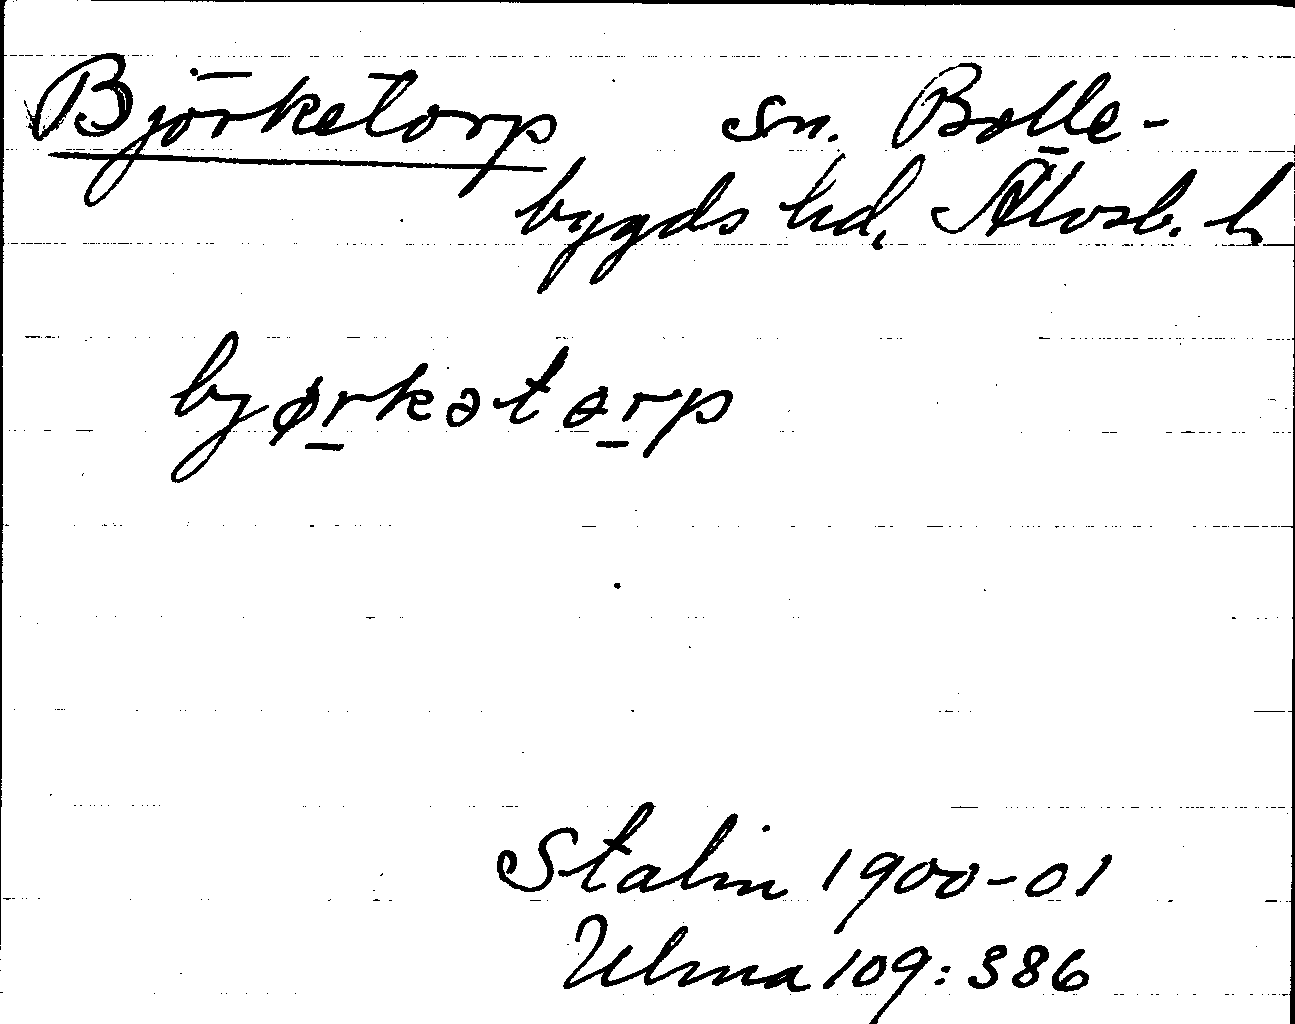 Björketorp sn. Bolle-
bygds hd, Älvsb. l.
bjørkətərp
Stalin 1900-01
Ulma 109:386